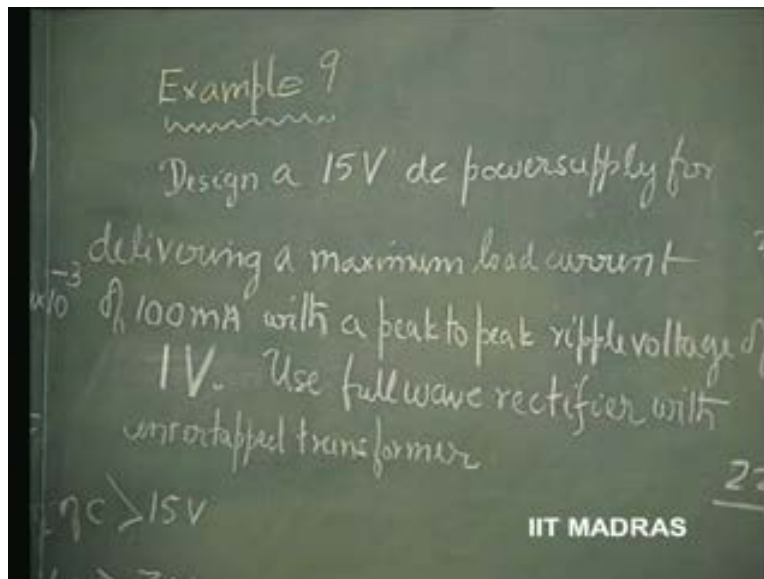 Example 9
Design a 15V dc powersupply for
delivering a maximum load current
x10⁻³ of 100mA with a peak to peak ripple voltage of
1V. Use full wave rectifier with
transformer
C > 15V
22
IIT MADRAS